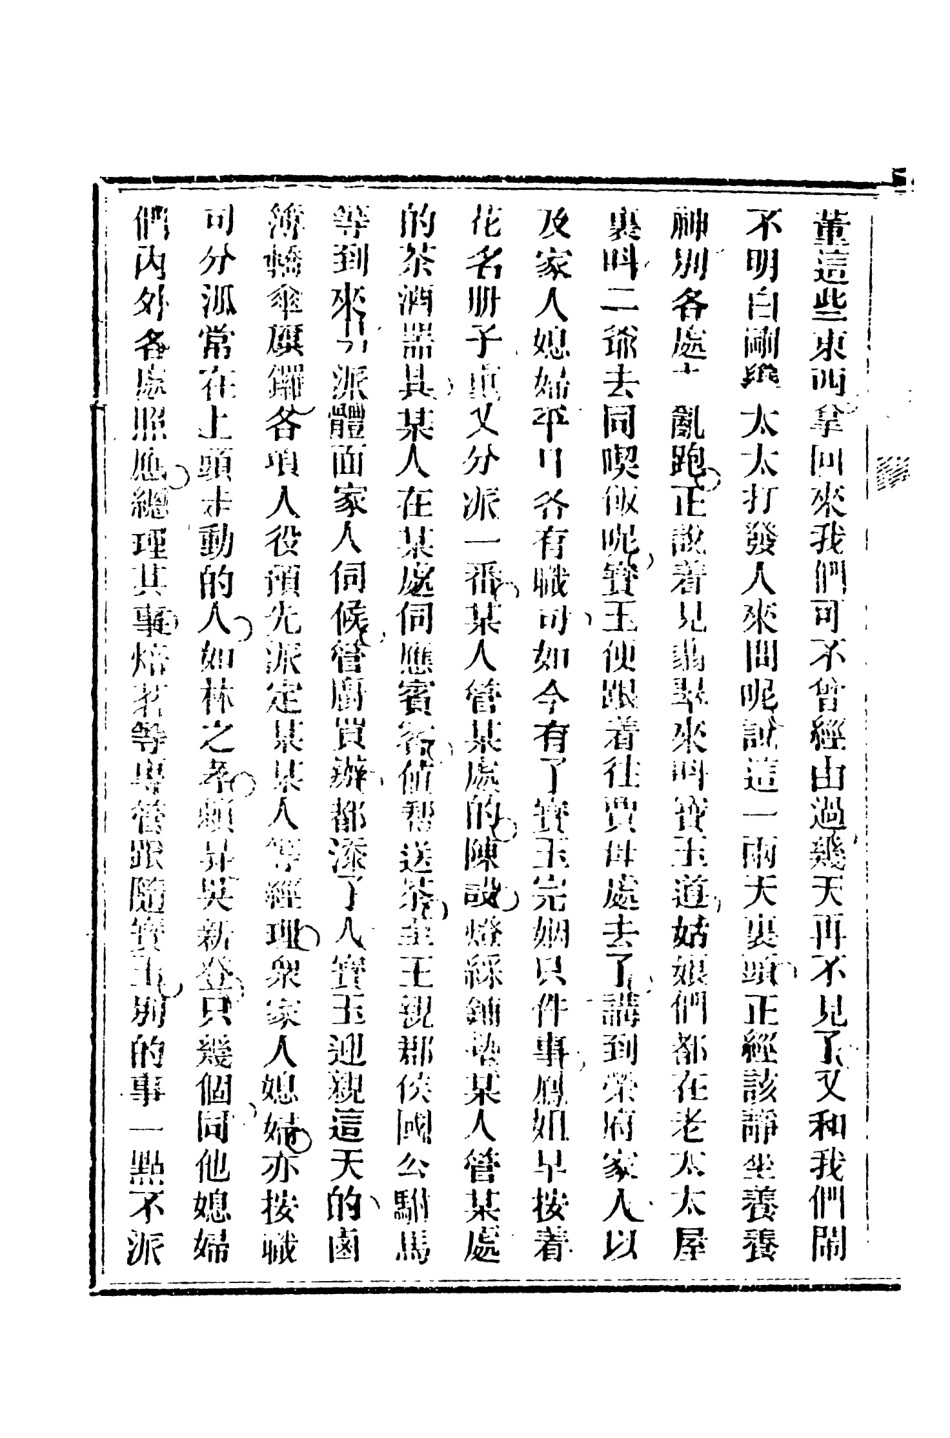 董這些東西拿回來我們可不曾經由過幾天再不見了又和我們鬧
不明白剛纔太太打發人來問呢說這一兩天裏頭正經該靜坐養養
神別各處 亂跑正說着見翡翠來呌寶玉道姑娘們都在老太太屋
裏呌二爺去同喫飯呢寶玉便跟着往賈母處去了講到榮府家人以
及家人媳婦平日各有職司如今有了寶玉完姻只件事鳳姐早按着
花名册子重又分派一番某人管某處的陳設燈綵鋪墊某人管某處
的茶酒器具某人在某處伺應賓客値帮送茶至王親郡侯國公駙馬
等到來 派體面家人伺候管廚買辦都添了人寶玉迎親這天的鹵
簿轎傘旗鑼各項人役預先派定某某人等經理衆家人媳婦亦按職
司分派常在上頭走動的人如林之孝賴昇吳新登只幾個同他媳婦
們內外各處照應總理其事焙茗等專管跟隨寶玉別的事一點不派